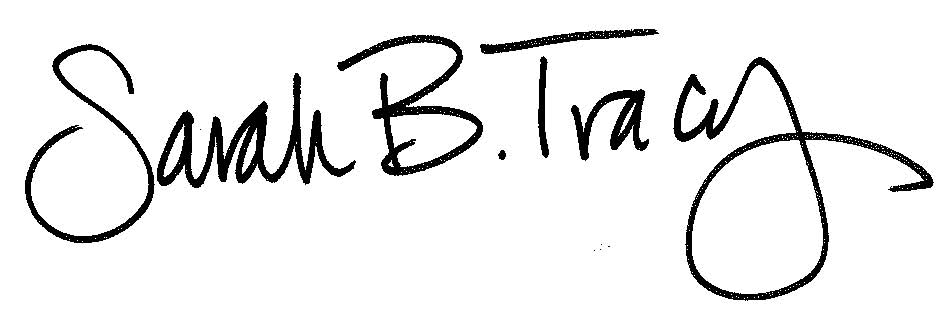 Sarah B. Tracy